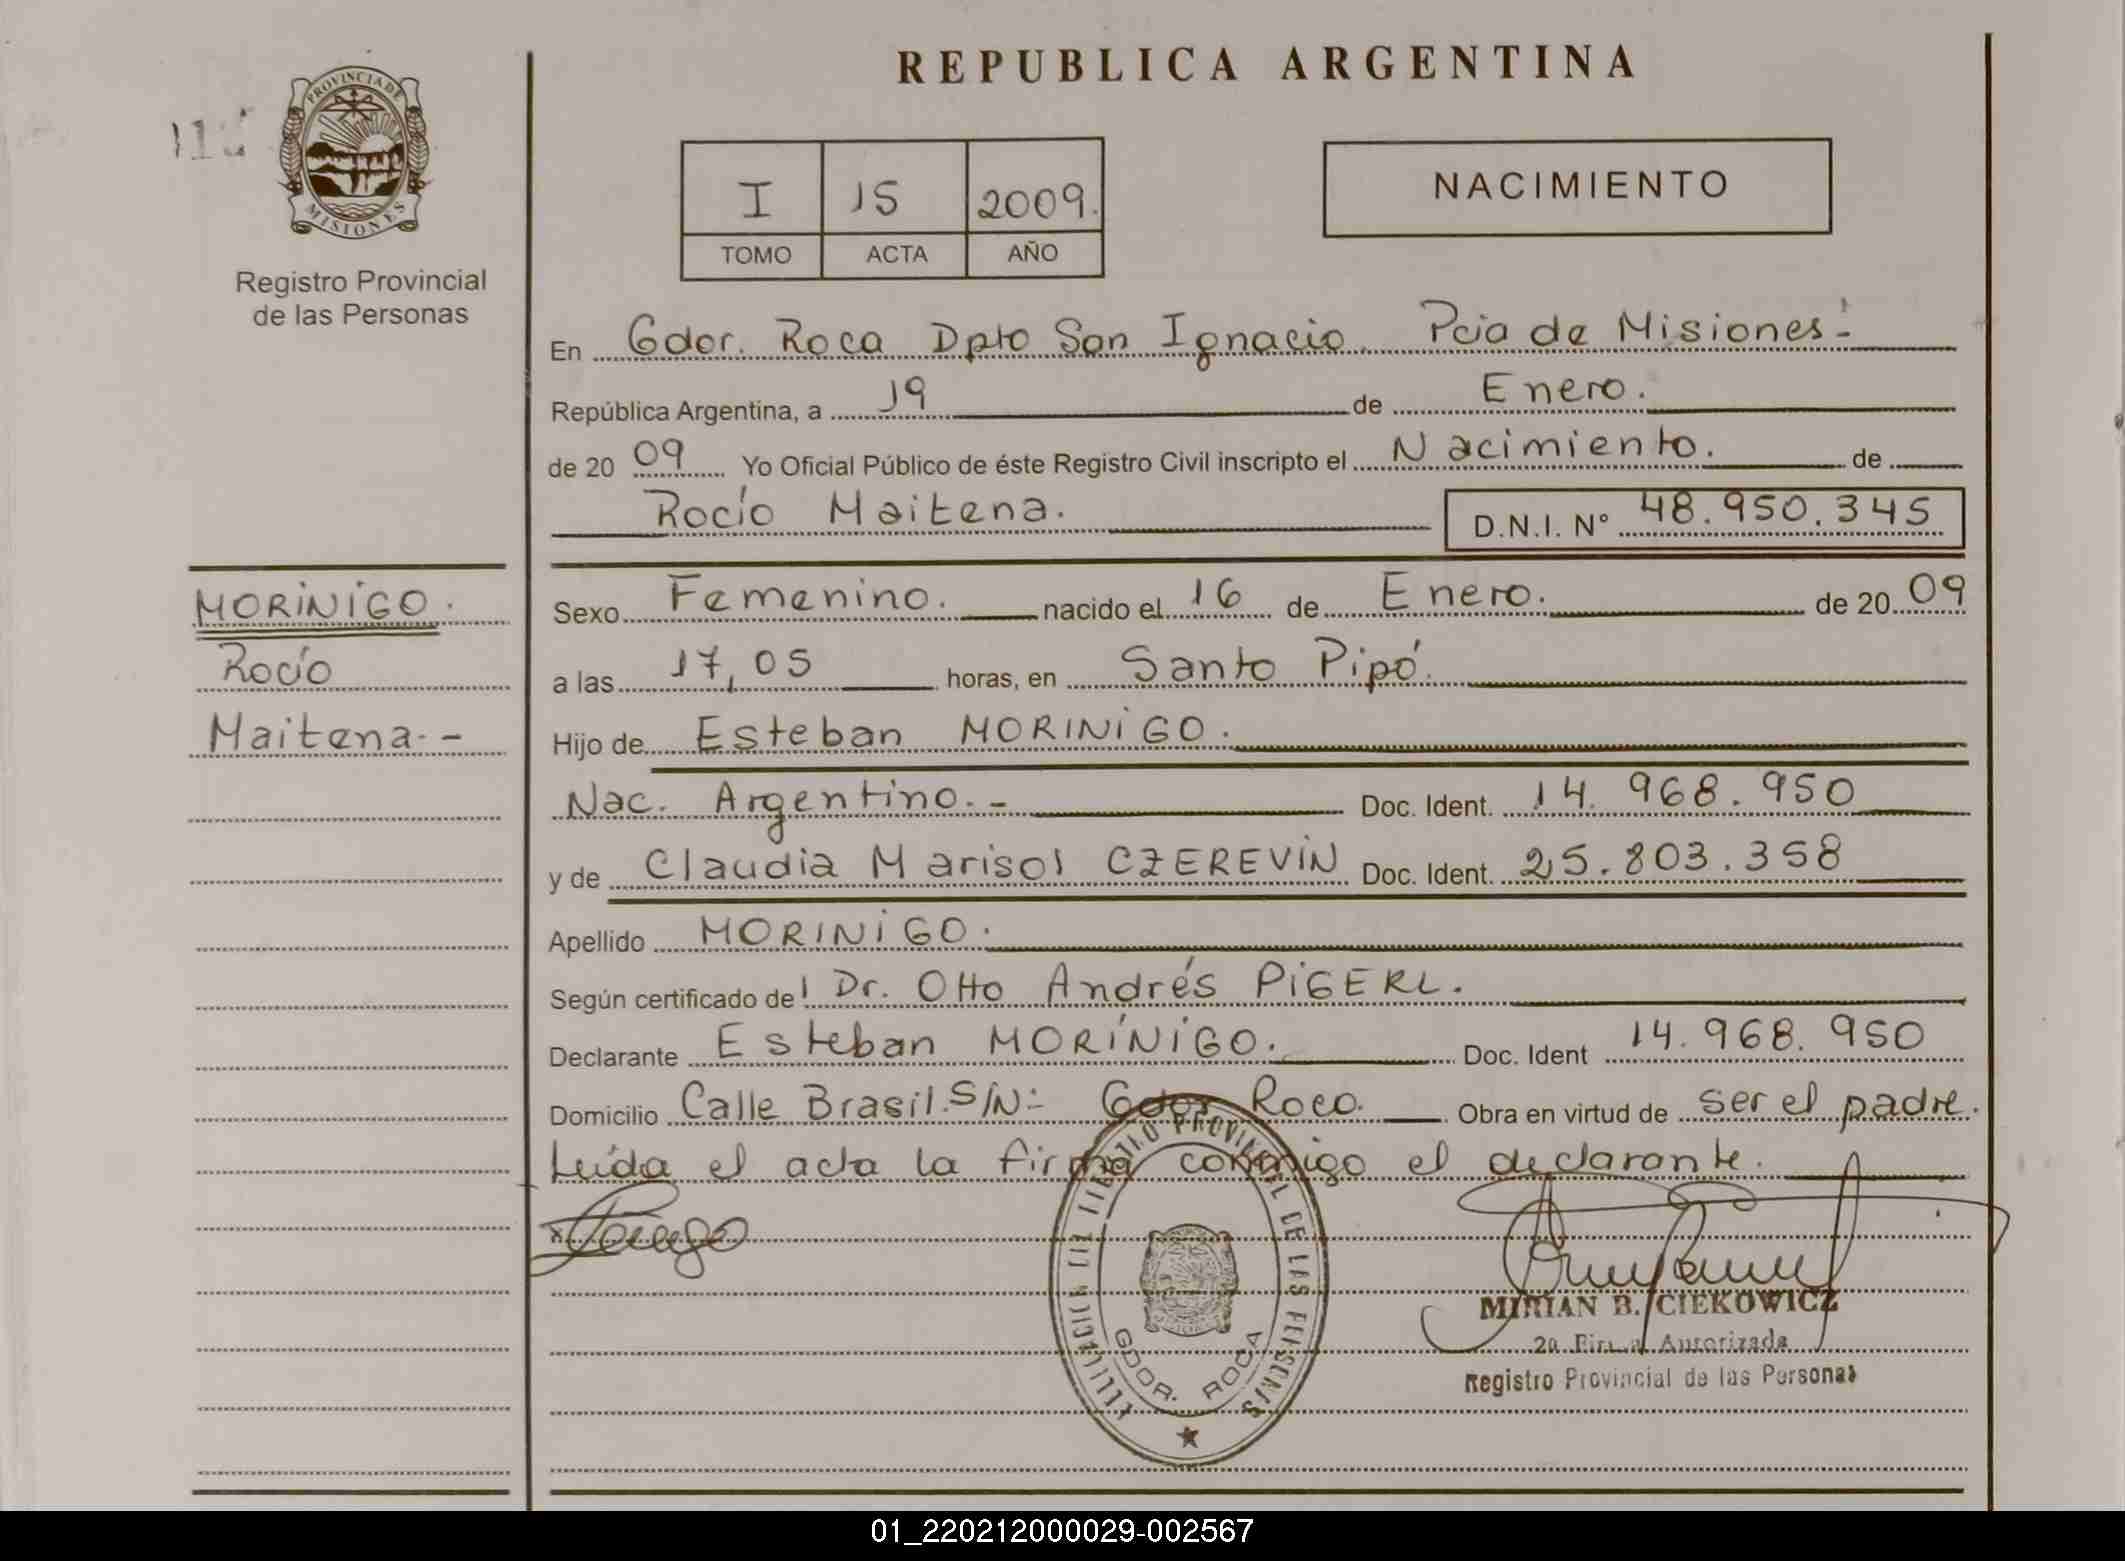 REPUBLICA ARGENTINA
PROVINCIA DE
MISIONES
Registro Provincial
de las Personas
I 15 2009.
TOMO ACTA AÑO
NACIMIENTO
En Gdor. Roca Dpto San Ignacio. Pcia de Misiones.-
República Argentina, a 19 de Enero.
de 20 09 Yo Oficial Público de éste Registro Civil inscripto el Nacimiento. de
Rocío Maitena. D.N.I. N° 48.950.345
MORINIGO.
Rocío
Maitena.-
Sexo Femenino. nacido el 16 de Enero. de 20 09
a las 17,05 horas, en Santo Pipó.
Hijo de Esteban MORINIGO.
Nac. Argentino.- Doc. Ident. 14.968.950
y de Claudia Marisol CZEREVIN Doc. Ident. 25.803.358
Apellido MORINIGO.
Según certificado del Dr. Otto Andrés PIGERL.
Declarante Esteban MORÍNIGO. Doc. Ident 14.968.950
Domicilio Calle Brasil S/N:- Gdor Roca. Obra en virtud de ser el padre.
Leída el acta la firma conmigo el declarante.
PROVINCIAL DE LAS PERSONAS
GDOR. ROCA
MIRIAN B. CIEKOWICZ
2a Firma Autorizada
Registro Provincial de las Personas
01_220212000029-002567